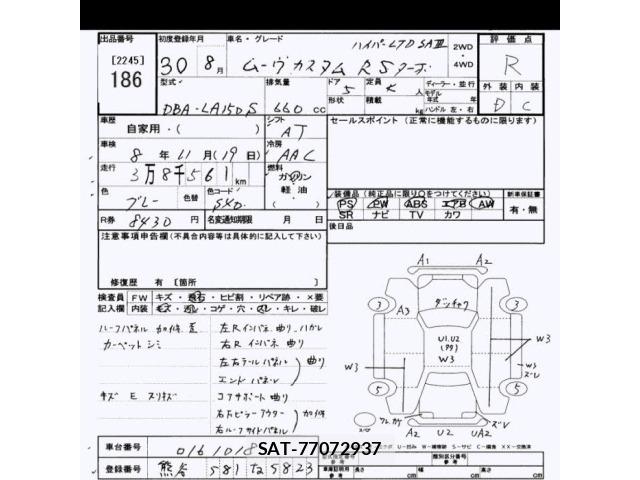 出品番号 初度登録年月 車名・グレード ハイパーLTD SAⅢ 2WD ・ 4WD 評価点
[2245] 186 30年 8月 ムーヴ カスタム RSターボ R
型式 排気量 ドア 定員 ディーラー・並行
DBA-LA150S 660 cc 5 人 モデル年式 年
形状 積載 kg ハンドル 左・右 外装 内装
D C
車歴 自家用・( ) シフト AT セールスポイント (正常に機能するものに限ります)
車検 8年 11月 (19日) 冷房 AAC
走行 3万8千561km 燃料 ガソリン 軽油
色 グレー 色替 色コード 装備品 (純正品に限り○をつけてください) 新車保証書
PS PW ABS エアB AW 有・無
SR ナビ TV カワ
R券 8430円 名変通知期限 月 日 後日品
注意事項申告欄(不具合内容等は具体的に記入して下さい)
修復歴 有 [箇所 ]
検査員記入欄 FW キズ・飛石・ヒビ割・リペア跡・×要
内装 キズ・汚レ・コゲ・穴・スレ・キレ・破レ
ルーフパネル 加修 歪
カーペット シミ
キズ E スリキズ
左Rインパネ 曲り ハガレ
右Rインパネ 曲り
左右テールパネル 曲り
エンドパネル
コアサポート 曲り
右Fピラーアウター 加修
右ルーフサイドパネル
A1 A2
ダッチャク
3 A3 3
U1.U2
(99)
W3
W3 W3
W3
ズレ
5 5
ズレ
A2 U2 UA2
車台番号 0161018
SAT-77072937
登録番号 熊谷 581 た 5823
長さ cm 幅 cm 高さ cm